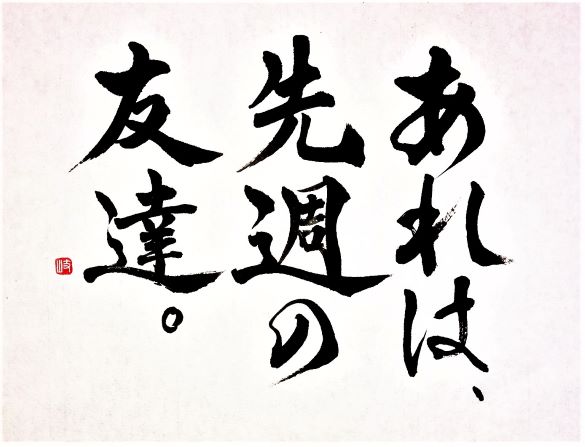 あれは、
先週の
友達。
岐